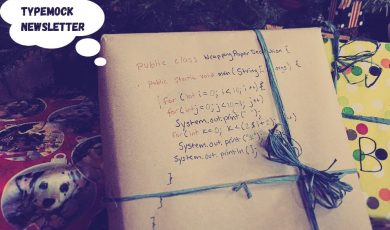 TYPEMOCK
NEWSLETTER
public class WrappingPaperDecoration {
public static void main (String[]
for (int i = 0; i < 10; i++) {
for (int j = 0; j < 10-i; j++)
System.out.print (" ");
for (int k = 0; k < (2
System.out.print ("
System.out.println ();
}
}
B